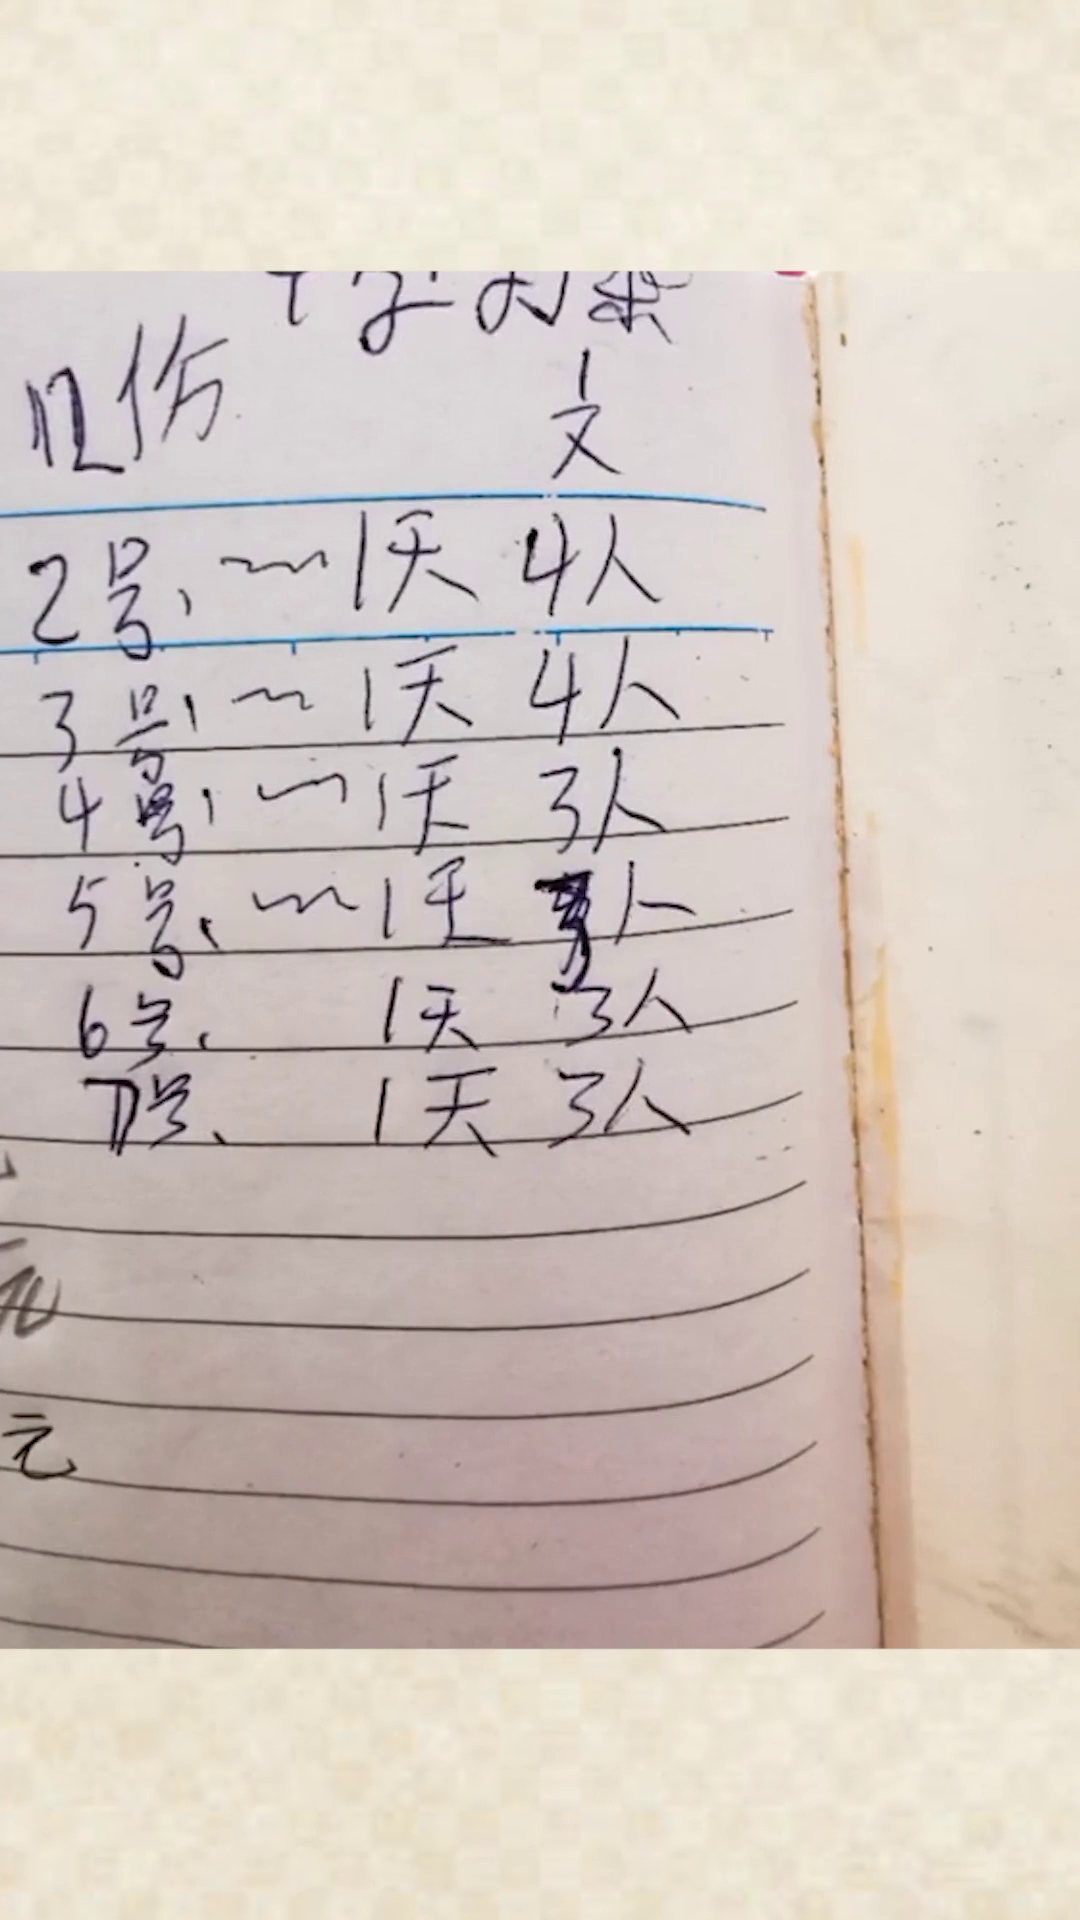 文
2号、~1天 4人
3号、~1天 4人
4号、~1天 3人
5号、~1天 人
6号、 1天 3人
7号、 1天 3人
元
元